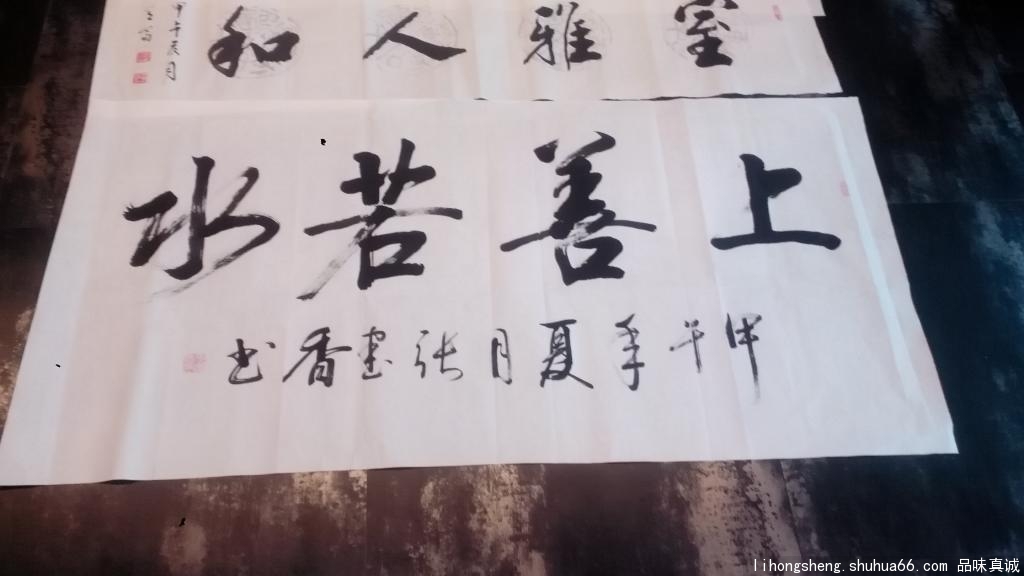 室雅人和
甲午夏月
上善若水
甲午年夏月张建香书
lihongsheng.shuhua66.com 品味真诚